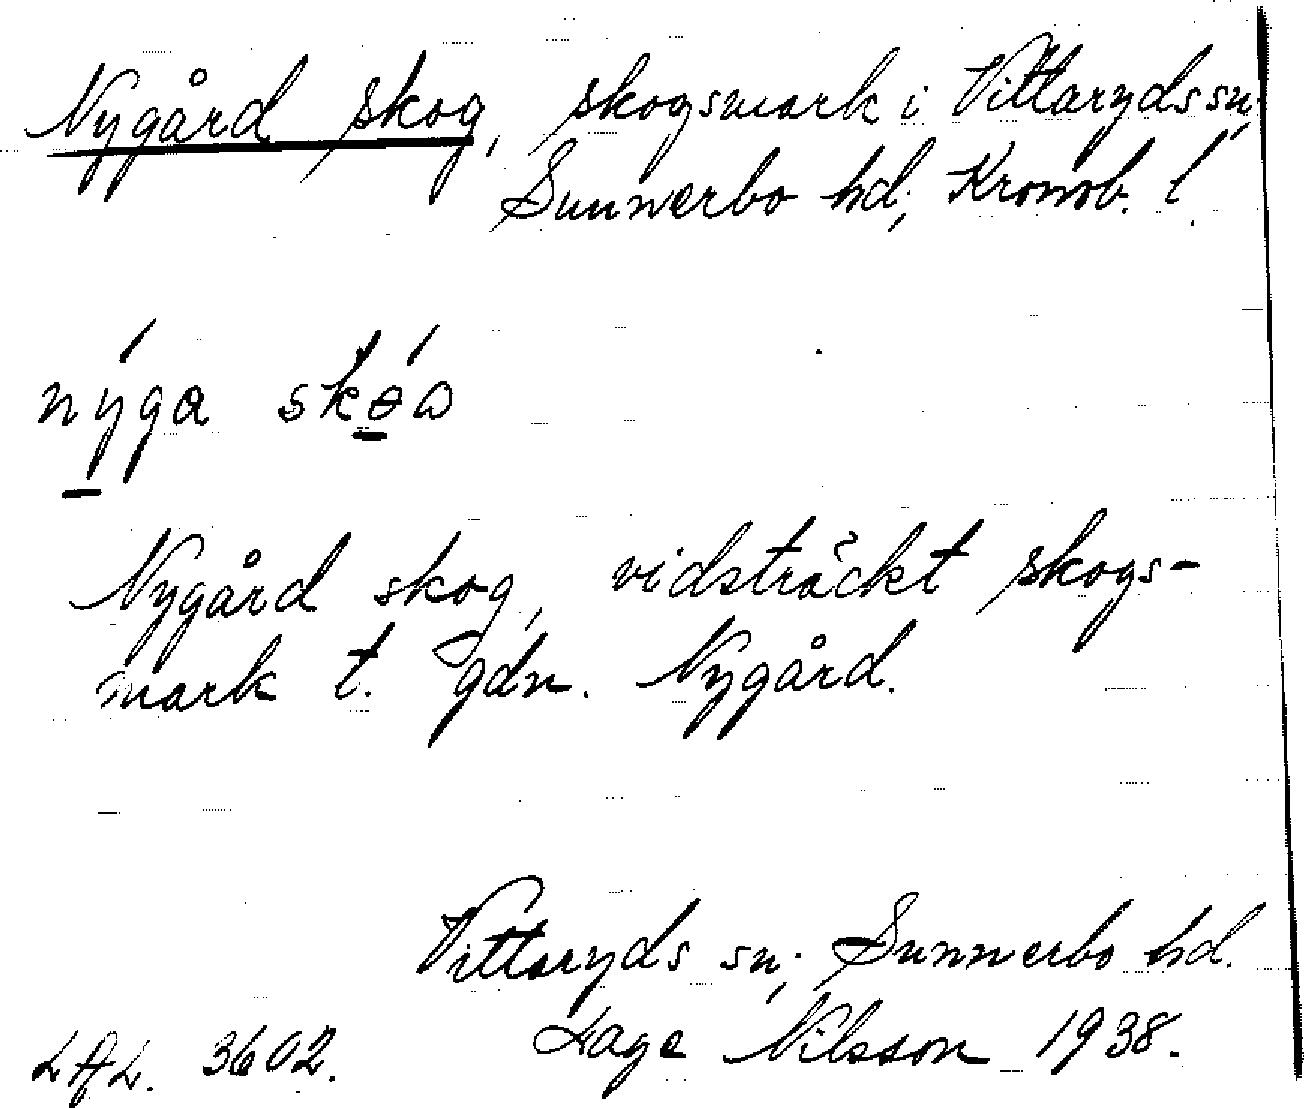 Nygård skog, skogsmark i Vittaryds sn,
Sunnerbo hd; Kronob. l.
nýga skǿa
Nygård skog, vidsträckt skogs-
mark t. gdn. Nygård.
Vittaryds sn; Sunnerbo hd.
LAL. 3602. Lage Nilsson 1938.